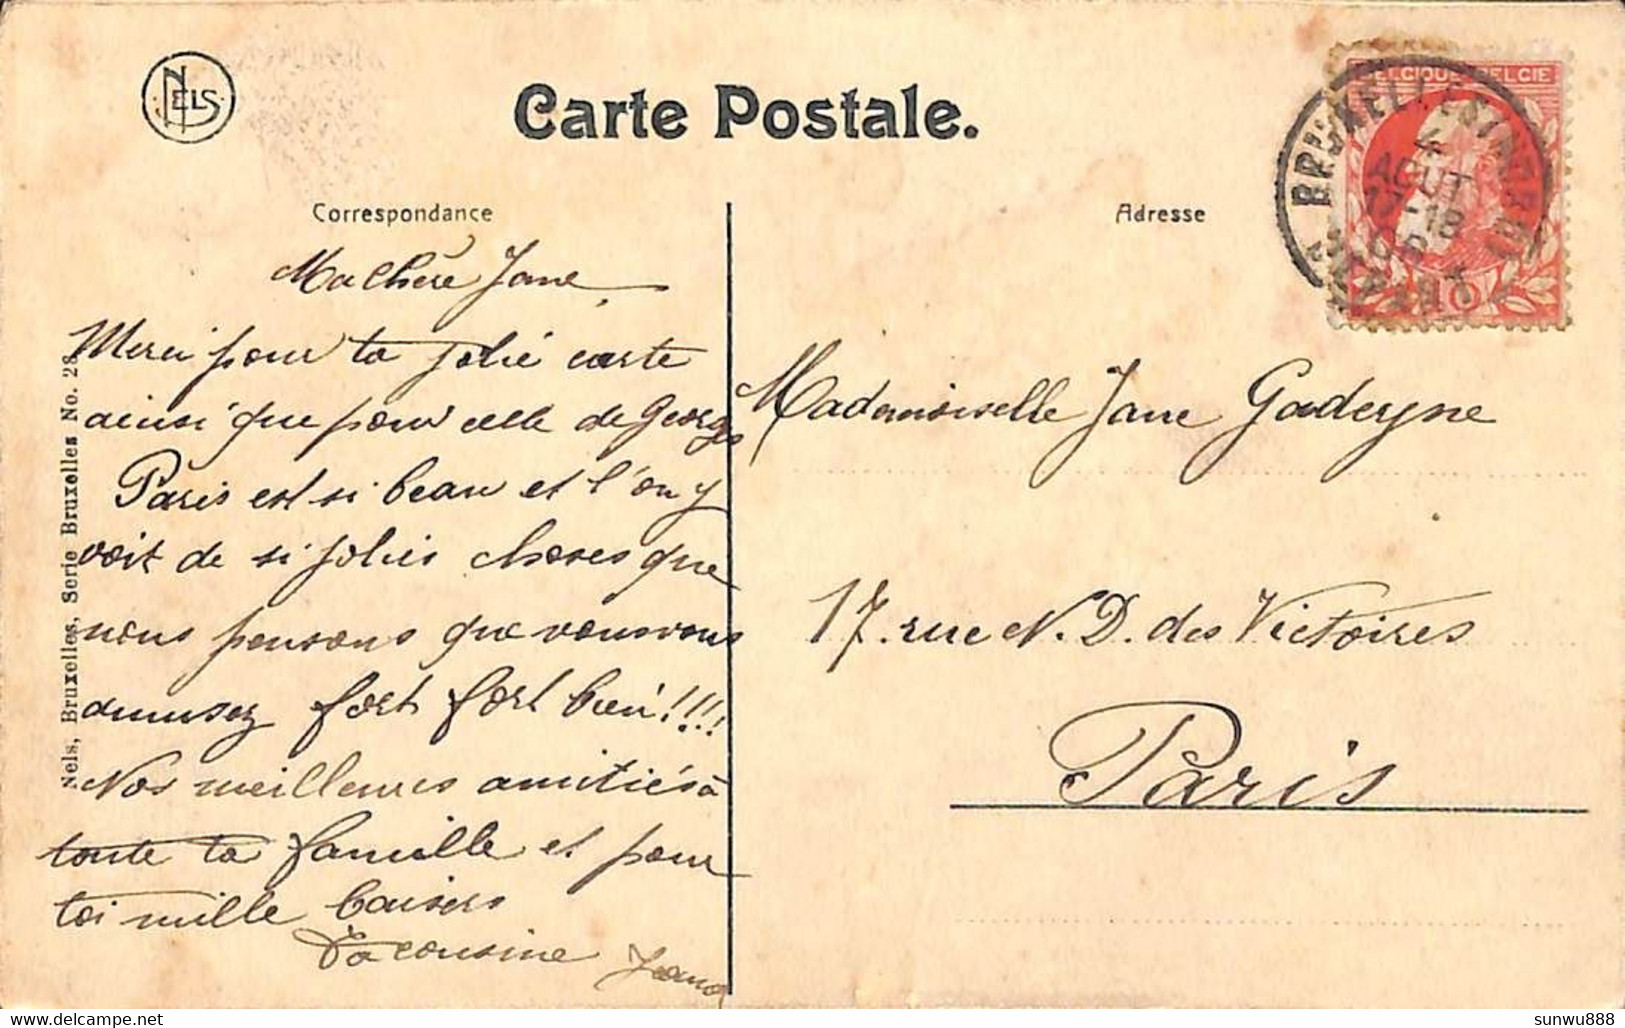 NELS
Carte Postale.
Correspondance
Ma Chère Jane
Merci pour ta jolie carte
ainsi que pour celle de Georges
Paris est si beau et l'on y
voit de si jolies choses que
nous pensons que vous vous
amusez fort fort bien!!!!
Nos meilleures amitiés à
toute ta famille et pour
toi mille baisers
Ta cousine
Nels, Bruxelles, Serie Bruxelles No. 28
Adresse
Mademoiselle Jane Gadeyne
17. rue N. D. des Victoires
Paris
BELGIQUE BELGIE
10
BRUXELLES
4
AOUT
17-18
sunwu888